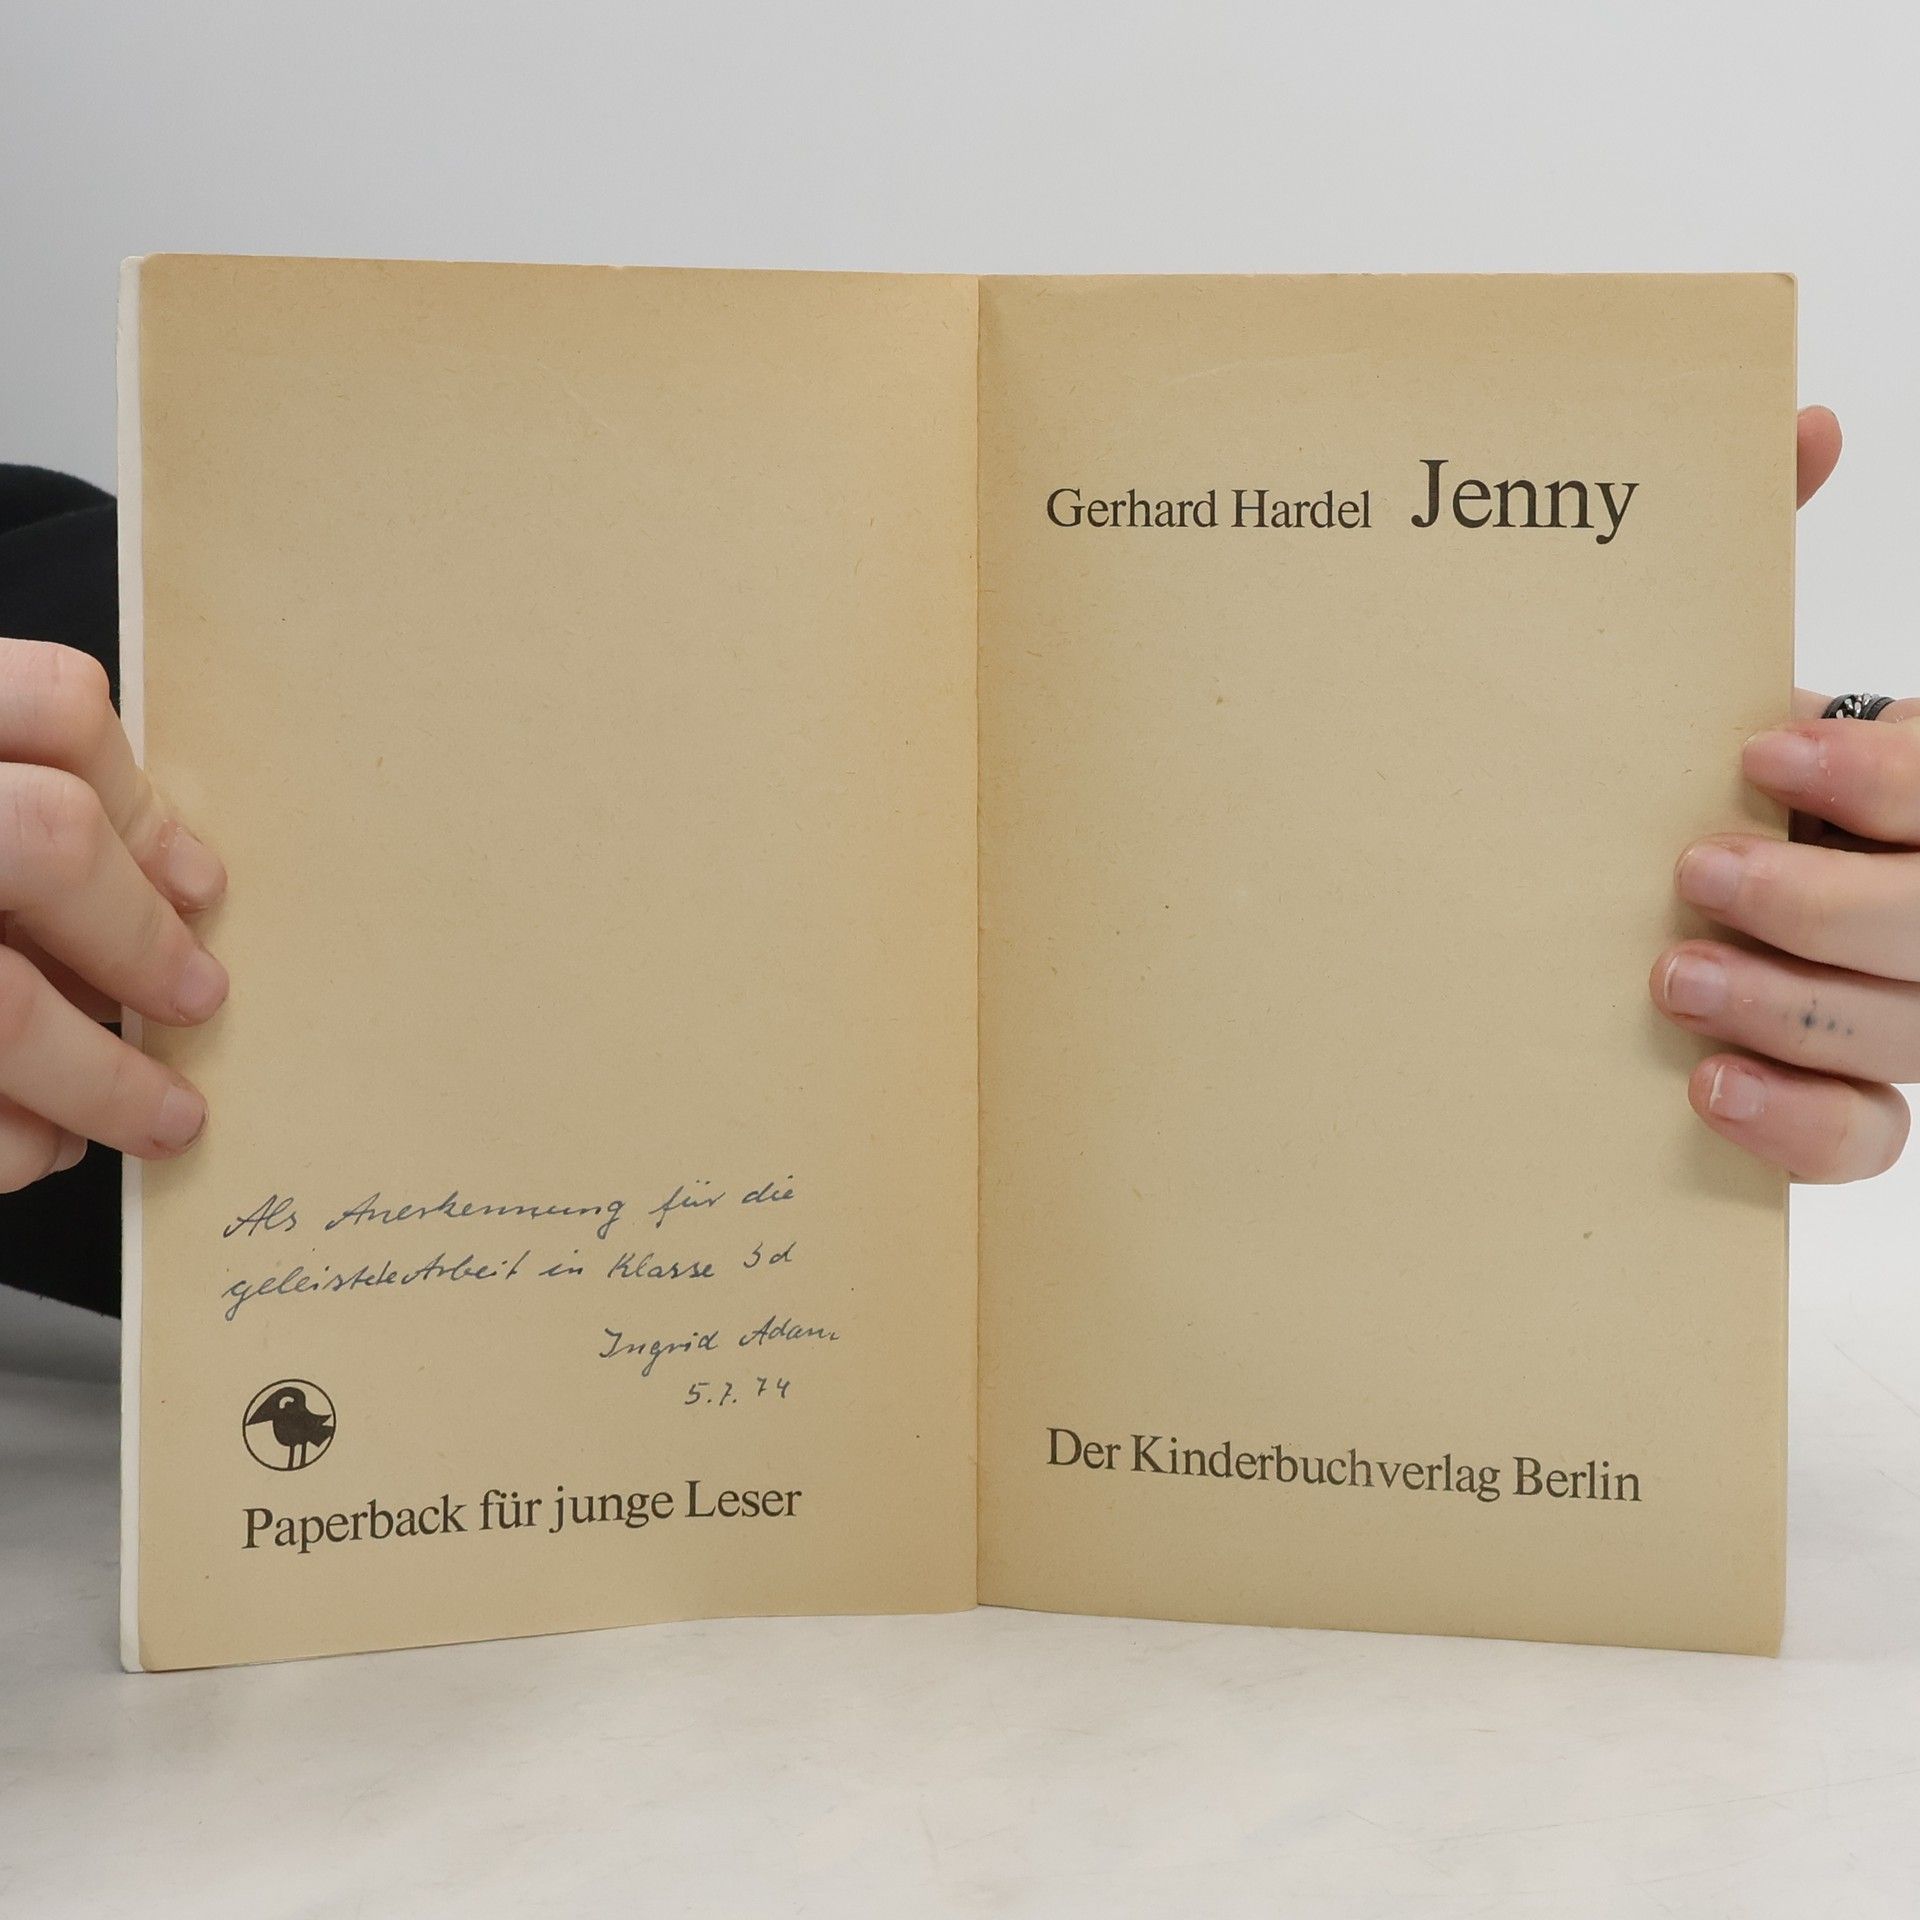 Als Anerkennung für die
geleistete Arbeit in Klasse 3d
Ingrid Adam
5.7.74
Paperback für junge Leser
Gerhard Hardel Jenny
Der Kinderbuchverlag Berlin